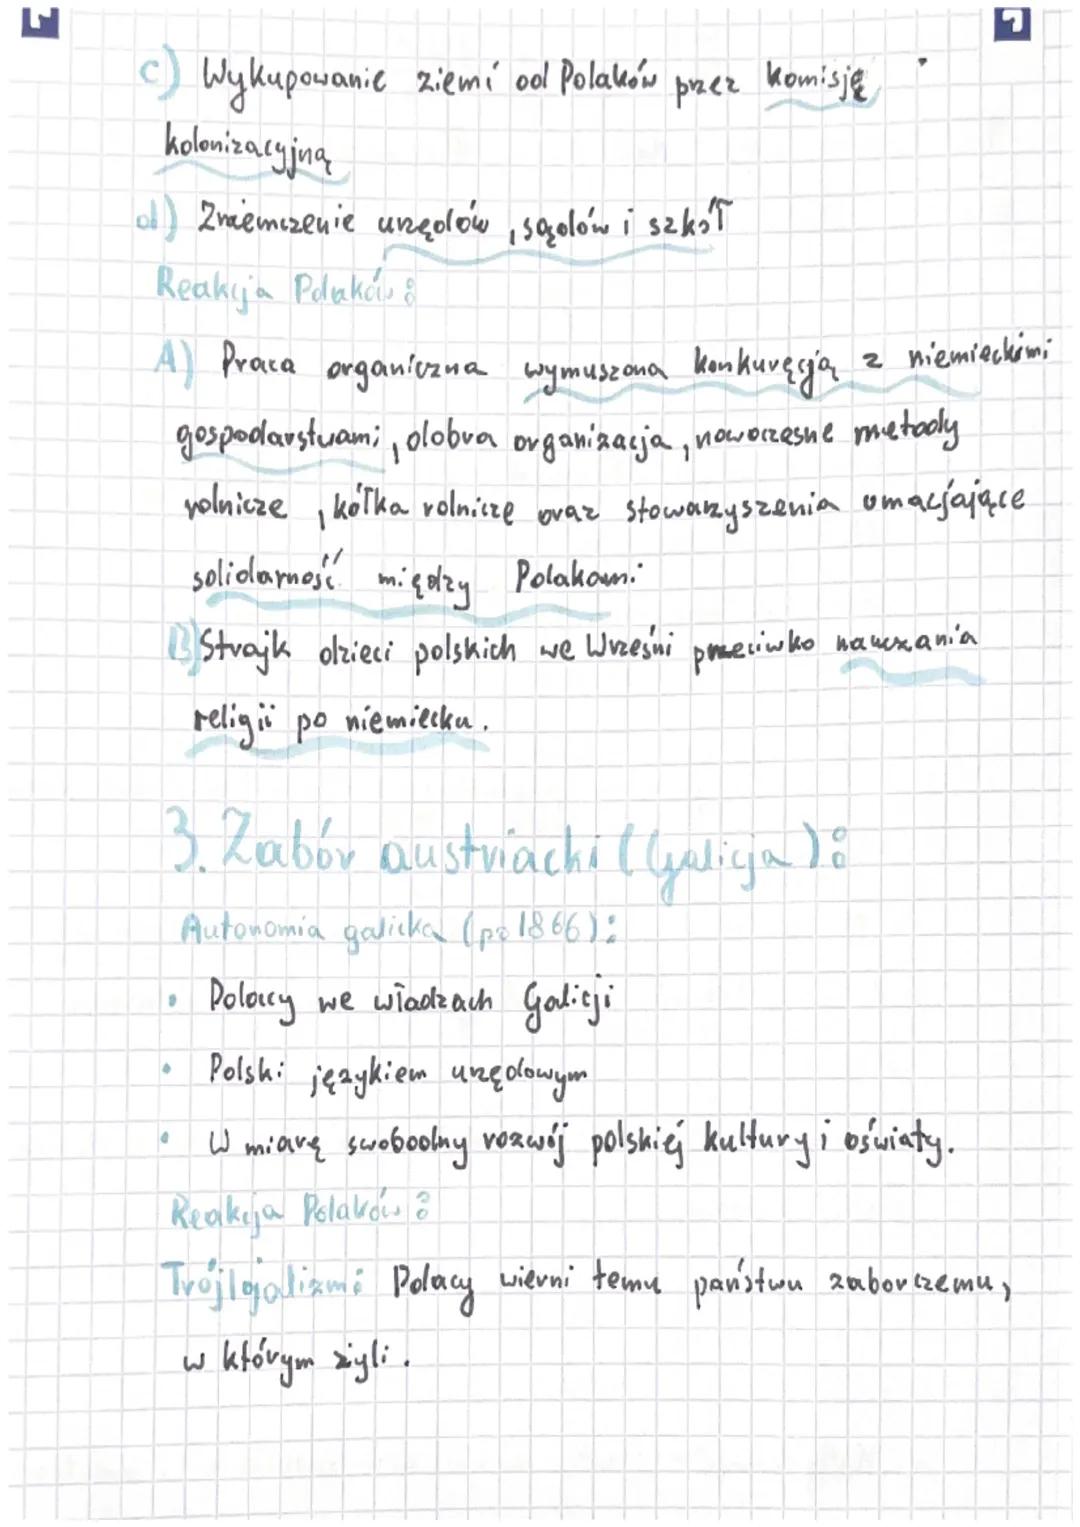 c) Wykupowanie ziemi od Polaków przez komisję
kolonizacyjną
d) Zniemczenie urzędów, sądów i szkół
Reakcja Polaków:
A) Praca organiczna wymuszona konkuręcją z niemieckimi
gospodarstwami, dobra organizacja, nowoczesne metody
rolnicze, kółka rolnicze oraz stowarzyszenia umacjające
solidarność między Polakami
B) Strajk dzieci polskich we Wrześni przeciwko nauczania
religii po niemiecku.
3. Zabór austriacki (Galicja):
Autonomia galicka (po 1866):
• Polacy we władzach Galicji
• Polski językiem urzędowym
• W miarę swobodny rozwój polskiej kultury i oświaty.
Reakcja Polaków:
Trójlojalizm: Polacy wierni temu państwu zaborczemu,
w którym żyli.